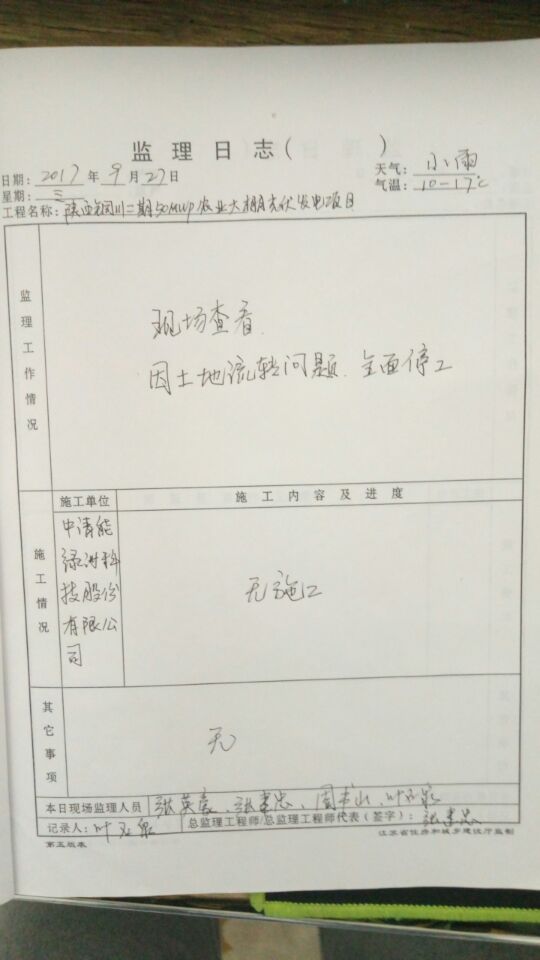 监理日志(      )
日期: 2017 年 9 月 27 日
天气: 小雨
星期: 三
气温: 10-17℃
工程名称: 陕西铜川二期50MWp农业大棚光伏发电项目
监理工作情况
现场查看.
因土地流转问题、全面停工
施工情况
施工单位
施工内容及进度
中清能
绿洲科
技股份
有限公
司
无施工
其它事项
无
本日现场监理人员 张英豪、张建忠、周书山、叶
记录人: 叶
总监理工程师/总监理工程师代表(签字): 张建忠
第五版表
江苏省住房和城乡建设厅监制